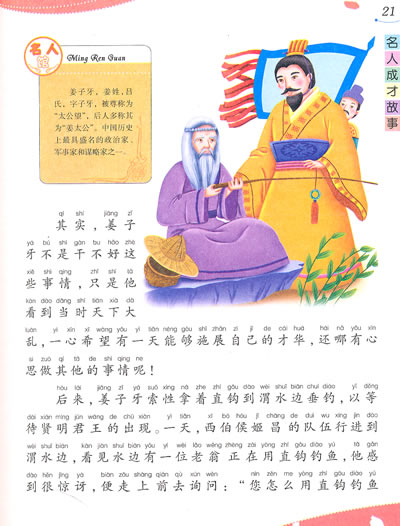 21
名人成才故事
名人馆
Ming Ren Guan
姜子牙，姜姓，吕
氏，字子牙，被尊称为
“太公望”，后人多称其
为“姜太公”。中国历史
上最具盛名的政治家、
军事家和谋略家之一。
qí shí jiāng zǐ
其实，姜子
yá bú shì gàn bu hǎo zhè
牙不是干不好这
xiē shì qing zhǐ shì tā
些事情，只是他
kàn dào dāng shí tiān xià dà
看到当时天下大
luàn yì xīn xī wàng yǒu yì tiān néng gòu shī zhǎn zì jǐ de cái huá hái nǎ yǒu xīn
乱，一心希望有一天能够施展自己的才华，还哪有心
si zuò qí tā de shì qing ne
思做其他的事情呢！
hòu lái jiāng zǐ yá suǒ xìng ná zhe zhí gōu dào wèi shuǐ biān chuí diào yǐ děng
后来，姜子牙索性拿着直钩到渭水边垂钓，以等
dài xián míng jūn wáng de chū xiàn yì tiān xī bó hóu jī chāng de duì wu xíng jìn dào
待贤明君王的出现。一天，西伯侯姬昌的队伍行进到
wèi shuǐ biān kàn jiàn shuǐ biān yǒu yí wèi lǎo wēng zhèng zài yòng zhí gōu diào yú tā gǎn
渭水边，看见水边有一位老翁 正在用直钩钓鱼，他感
dào hěn jīng yà biàn zǒu shàng qián qù xún wèn nín zěn me yòng zhí gōu diào yú
到很惊讶，便走上前去询问：“您怎么用直钩钓鱼